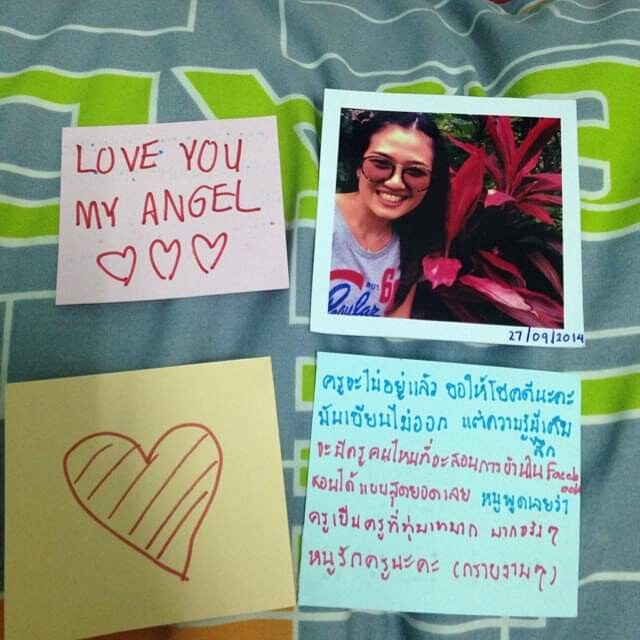 LOVE YOU
MY ANGEL
27/09/2014
ครูจะไม่อยู่แล้ว ขอให้โชคดีนะคะ
มันเขียนไม่ออก แต่ความรู้มีเต็ม
จะมีครูคนไหนที่จะสอนการบ้านใน Facebook
สอนได้แบบสุดยอดเลย หนูพูดเลยว่า
ครูเป็นครูที่ทุ่มเทมาก มากจริงๆ
หนูรักครูนะคะ